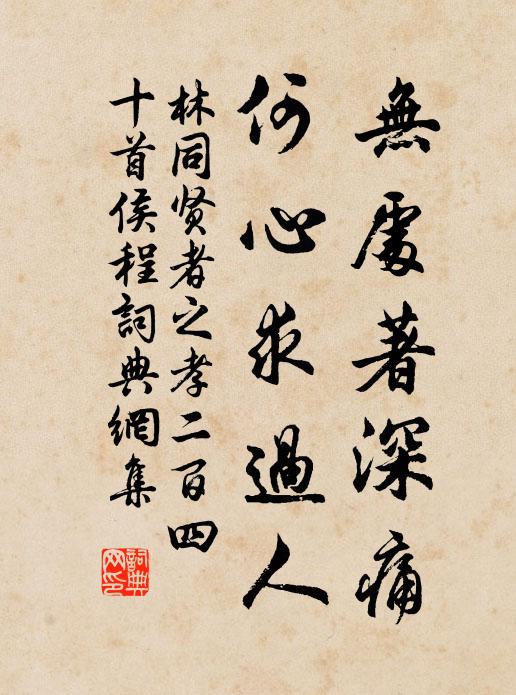 無處著深痛
何心求過人
林同贤者之孝二百四
十首侯程詞典網集
詞典
网印